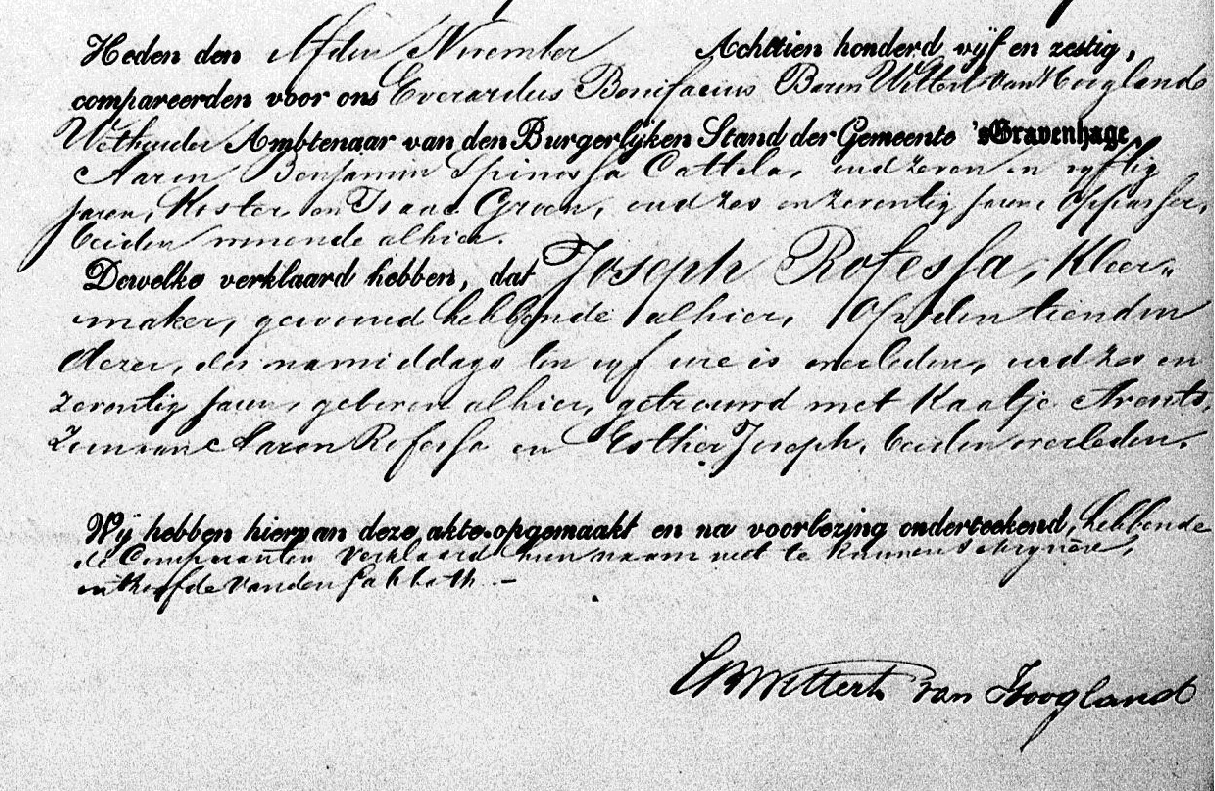 Heden den Elfden November Achttien honderd vijf en zestig,
compareerden voor ons Everardus Bonifacius Baron Wittert van Hoogland
Wethouder Ambtenaar van den Burgerlijken Stand der Gemeente 's Gravenhage,
Aaron Benjamin Spinossa Cattela, oud zeven en vijftig
jaren, Koster, en Isaac Groen, oud zes en zeventig jaren Oppasser,
beiden wonende alhier.
Dewelke verklaard hebben, dat Joseph Rofessa, Kleer-
maker, gewoond hebbende alhier, Op den tienden
dezer, des namiddags ten vijf ure is overleden, oud zes en
zeventig jaren, geboren alhier, getrouwd met Kaatje Arents,
Zoon van Aaron Rofessa en Esther Joseph, beiden overleden.
Wij hebben hiervan deze akte opgemaakt en na voorlezing onderteekend, hebbende
de Comparanten verklaard hun naam niet te kunnen schrijven,
uit hoofde van den Sabbath. -
EB Wittert van Hoogland